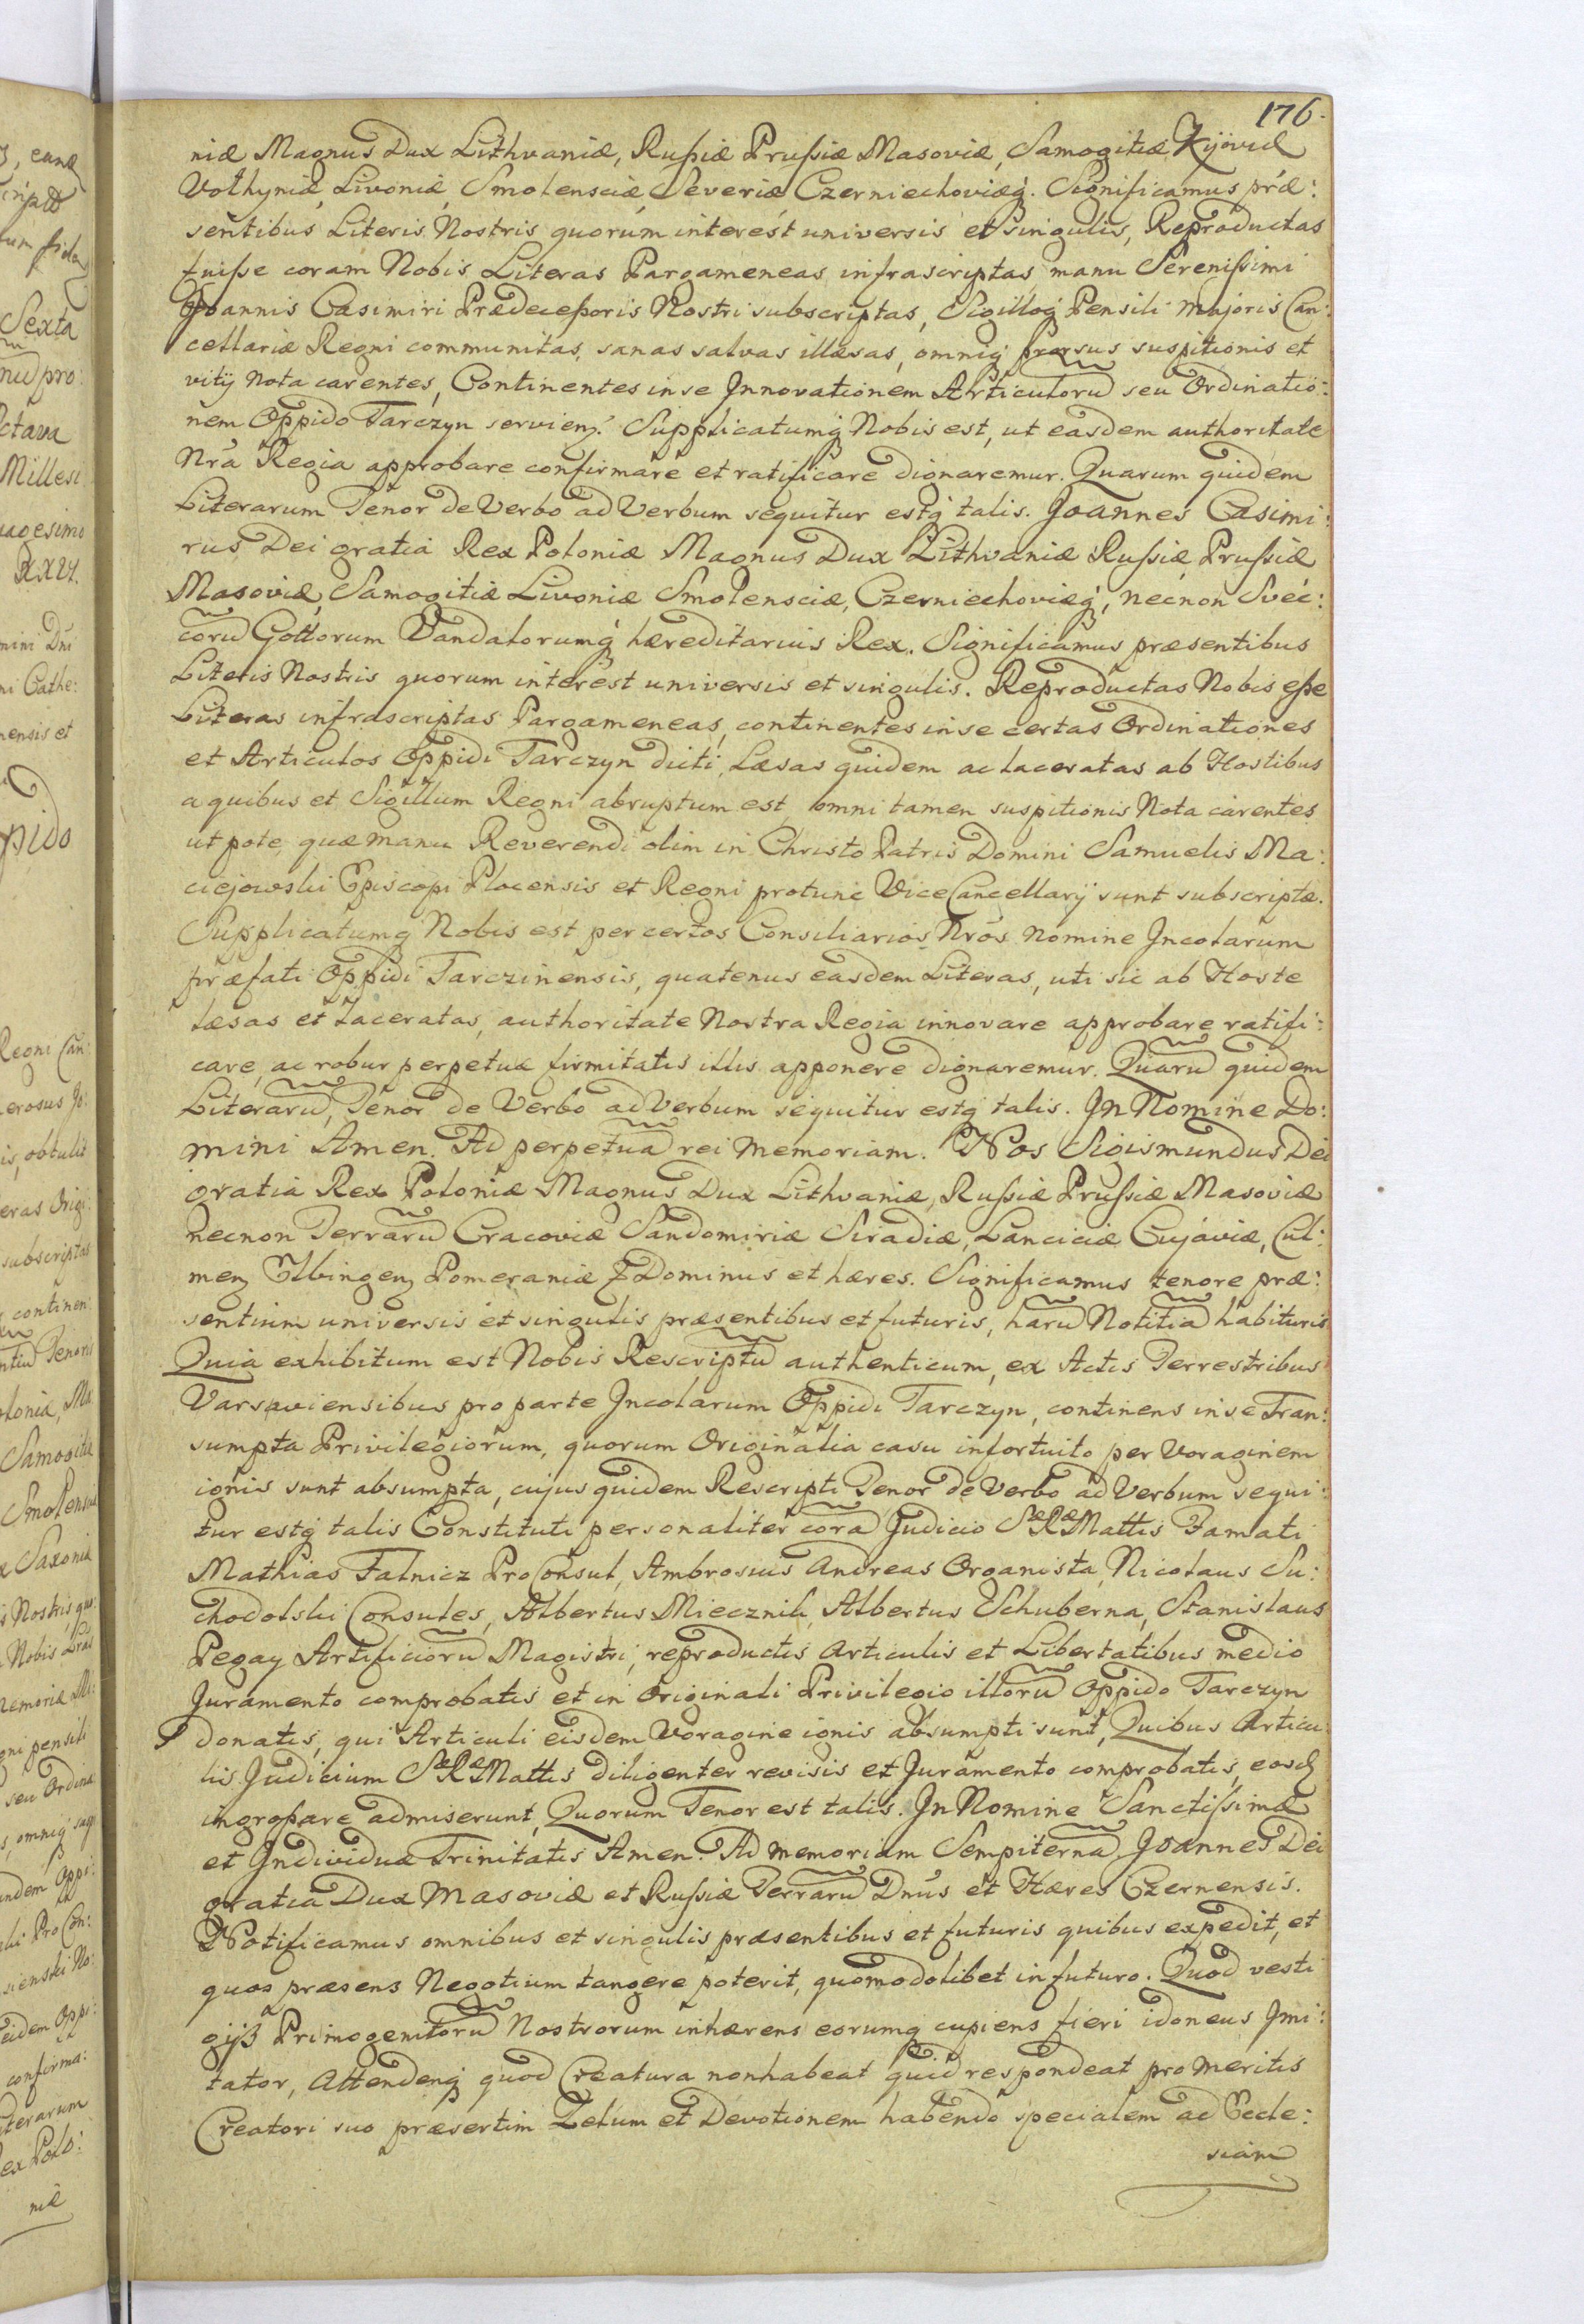 176.
niæ Magnus Dux Lithvaniæ, Rußiæ Prußiæ Masoviæ, Samogitiæ Kÿoviæ
Volhyniæ, Livoniæ, Smolensciæ, Severiæ Czerniechoviæq́. Significamus præ:
sentibus Literis Nostris quorum interest universis et singulis, Reproductas
fuiße coram Nobis Literas Pargameneas infrascriptas, manu Serenißimi
Joannis Casimiri Prædeceßoris Nostri subscriptas, Sigilloq́ Pensili Majoris Can:
cellariæ Regni communitas, sanas salvas illæsas, omniq́ prorsus suspitionis et
vitÿ nota carentes, Continentes in se Innovationem Articulorũ seu Ordinatio:
nem Oppido Tarczyn servien. Supplicatumq́ Nobis est, ut easdem authoritate
Nrã Regia approbare confirmare et ratificare dignaremur. Quarum quidem
Literarum Tenor de Verbo ad Verbum sequitur estq́ talis. Joannes Casimi:
rus Dei gratia Rex Poloniæ Magnus Dux Lithvaniæ Rußiæ, Prußiæ
Masoviæ, Samogitiæ Livoniæ Smolensciæ, Czerniechoviæq́, necnon Svec:
corũ Gottorum Vandalorumq́ hæreditarius Rex. Significamus præsentibus
Literis Nostris quorum interest universis et singulis. Reproductas Nobis eße
Literas infrascriptas Pargameneas, continentes in se certas Ordinationes
et Articulos Oppidi Tarczyn dicti, Læsas quidem ac laceratas ab Hostibus
a quibus et Sigillum Regni abruptum est, omni tamen suspitionis Nota carentes
ut pote quæ manu Reverendi olim in Christo Patris Domini Samuelis Ma:
ciejowski Episcopi Plocensis et Regni protunc ViceCancellarÿ sunt subscriptæ.
Supplicatumq́ Nobis est per certos Consiliarios Nrõs nomine Incolarum
præfati Oppidi Tarczinensis, quatenus easdem Literas, uti sic ab Hoste
læsas et Laceratas, authoritate Nostra Regia innovare approbare ratifi:
care, ac robur perpetuæ firmitatis illis apponere dignaremur. Quarũ quidem
Literarũ, Tenor de Verbo ad Verbum sequitur estq́ talis. In Nomine Do:
mini Amen. Ad perpetuã rei memoriam. Nos Sigismundus Dei
gratia Rex Poloniæ Magnus Dux Lithvaniæ, Rußiæ Prußiæ Masoviæ
necnon Terrarũ Cracoviæ Sandomiriæ Siradiæ, Lanciciæ Cujaviæ, Cul:
men Elbingen Pomeraniæ Dominus et hæres. Significamus tenore præ:
sentium universis et singulis præsentibus et futuris, harũ Notitiã habituris
Quia exhibitum est Nobis Rescriptũ authenticum, ex Actis Terrestribus
Varsaviensibus pro parte Incolarum Oppidi Tarczyn, continens in se Tran:
sumpta Privilegiorum, quorum Originalia casu infortuito per Voraginem
ignis sunt absumpta, cujus quidem Rescripti Tenor de Verbo ad Verbum sequi:
tur estq́ talis Constituti personaliter corã Judicio SæRæMattis Famati
Mathias Falnicz ProConsul, Ambrosius Andreas Organista, Nicolaus Su:
chodolski Consules, Albertus Miecznik, Albertus Schuberna, Stanislaus
Pegay Artificiorũ Magistri, reproductis Articulis et Libertatibus medio
Juramento comprobatis et in Originali Privilegio illorũ Oppido Tarczyn
donatis, qui Articuli eisdem Voragine ignis absumpti sunt, Quibus Articu
lis Judicium SæRæMattis diligenter revisis et Juramento comprobatis, eosd
ingroßare admiserunt, Quorum Tenor est talis. In Nomine Sanctißimæ
et Individuæ Trinitatis Amen. Ad memoriam Sempiternã, Joannes Dei
gratia Dux Masoviæ et Rußiæ Terrarũ Dnũs et Hæres Czernensis.
Notificamus omnibus et singulis præsentibus et futuris quibus expedit, et
quos præsens Negotium tangere poterit, quomodolibet in futuro. Quod vesti
gÿß Primogenitorũ Nostrorum inhærens eorumq́ cupiens fieri idoneus Imi:
tator, Attendenq́ quod Creatura non habeat quid respondeat pro Meritis
Creatori suo præsertim Zelum et Devotionem habendo specialem ad Eccle:
siam